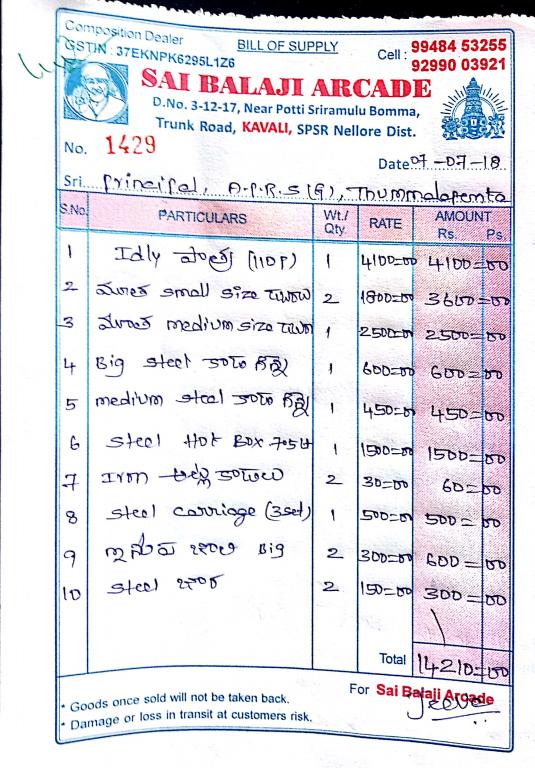 Composition Dealer
GSTIN : 37EKNPK6295L1Z6
BILL OF SUPPLY
Cell : 99484 53255
92990 03921
SAI BALAJI ARCADE
D.No. 3-12-17, Near Potti Sriramulu Bomma,
Trunk Road, KAVALI, SPSR Nellore Dist.
No. 1429
Date 07-07-18
Sri Principal, A.P.R.S (G), Thummalapenta
S.No. PARTICULARS Wt./Qty. RATE AMOUNT Rs. Ps.
1 Idly పాత్ర (110P) 1 4100=00 4100=00
2 మూత small size 2 1800=00 3600=00
3 మూత medium size 1 2500=00 2500=00
4 Big steel 1 600=00 600=00
5 medium steel 1 450=00 450=00
6 Steel Hot Box 1 1500=00 1500=00
7 Iron 2 30=00 60=00
8 Steel carriage (3set) 1 500=00 500=00
9 ఇనుప Big 2 300=00 600=00
10 Steel 2 150=00 300=00
Total 14210=00
For Sai Balaji Arcade
* Goods once sold will not be taken back.
* Damage or loss in transit at customers risk.